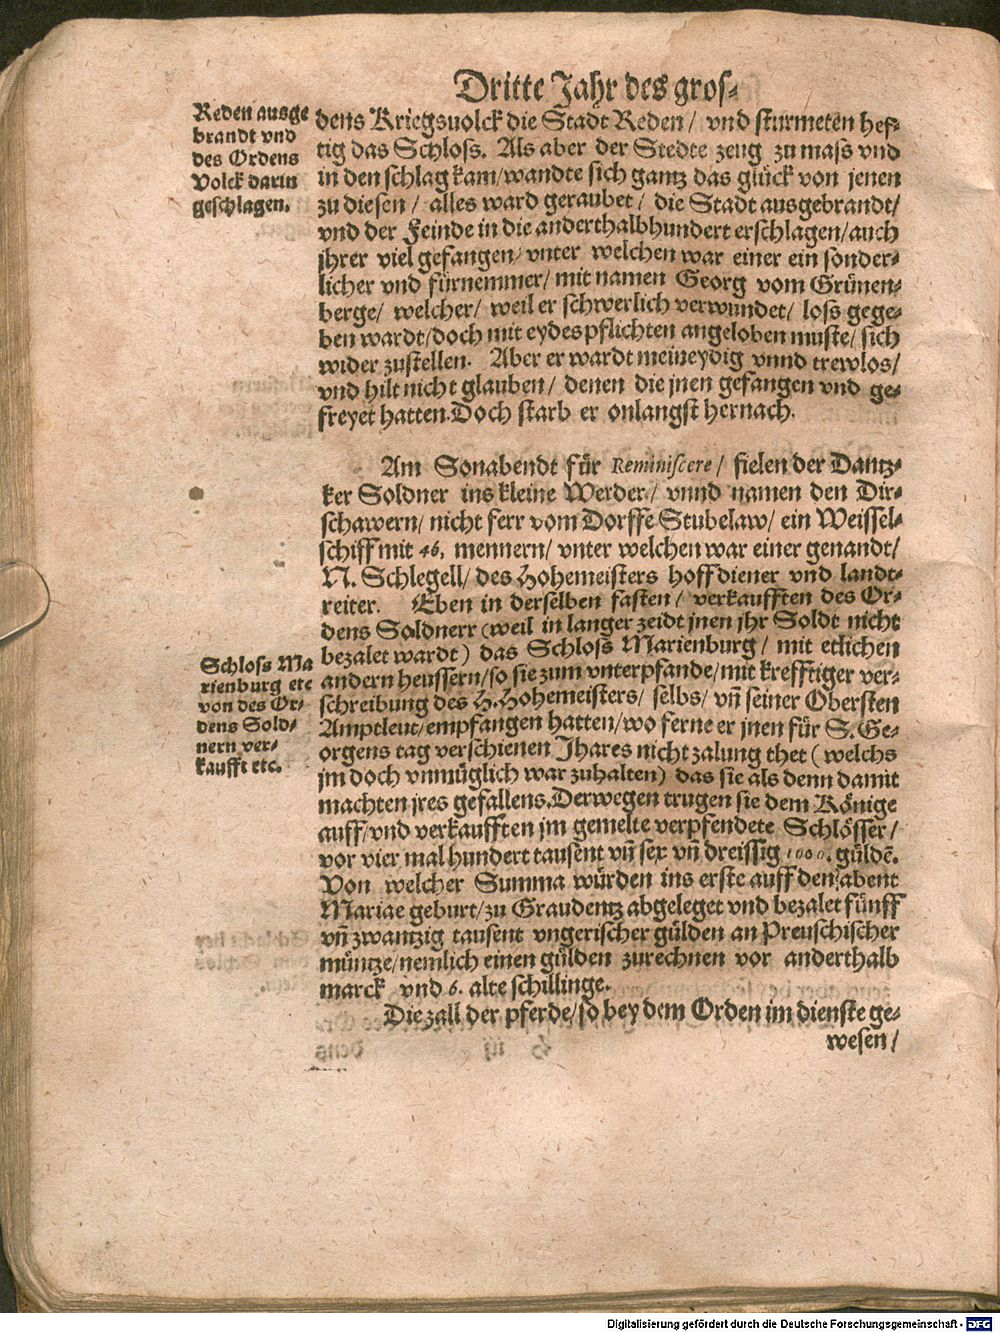 Dritte Jahr des gros⸗
Reden ausge
brandt vnd
des Ordens
Volck darin
geschlagen.
dens Kriegsuolck die Stadt Reden / vnd sturmeten hef⸗
tig das Schloss. Als aber der Stedte zeug zu mass vnd
in den schlag kam/wandte sich gantz das glück von jenen
zu diesen / alles ward geraubet / die Stadt ausgebrandt/
vnd der Feinde in die anderthalbhundert erschlagen/auch
jhrer viel gefangen/ vnter welchen war einer ein sonder⸗
licher vnd fürnemmer/ mit namen Georg vom Grünen⸗
berge/ welcher/ weil er schwerlich verwundet/ loss gege⸗
ben wardt/doch mit eydes pflichten angeloben muste/ sich
wider zustellen. Aber er wardt meineydig vnnd trewlos/
vnd hilt nicht glauben/ denen die jnen gefangen vnd ge⸗
freyet hatten.Doch starb er onlangst hernach.
Am Sonabendt für Reminiscere/ fielen der Dantz⸗
ker Soldner ins kleine Werder/ vnnd namen den Dir⸗
schawern/ nicht ferr vom Dorffe Stubelaw/ ein Weissel⸗
schiff mit 46. mennern/ vnter welchen war einer genandt/
N. Schlegell/ des Hohemeisters hoffdiener vnd landt⸗
reiter. Eben in derselben fasten/ verkaufften des Or⸗
dens Soldnerr (weil in langer zeidt jnen jhr Soldt nicht
bezalet wardt) das Schloss Marienburg/ mit etlichen
andern heussern/so sie zum vnterpfande/mit krefftiger ver⸗
schreibung des H.Hohemeisters/ selbs/ vñ seiner Obersten
Amptleut/empfangen hatten/wo ferne er jnen für S.Ge⸗
orgens tag verschienen Jhares nicht zalung thet (welchs
jm doch vnmüglich war zuhalten) das sie als denn damit
machten jres gefallens.Derwegen trugen sie dem Könige
auff/vnd verkaufften jm gemelte verpfendete Schlösser/
vor vier mal hundert tausent vñ sex vñ dreissig 1000. güldē.
Von welcher Summa würden ins erste auff den abent
Mariae geburt/zu Graudentz abgeleget vnd bezalet fünff
vñ zwantzig tausent vngerischer gülden an Preuschischer
müntze/nemlich einen gülden zurechnen vor anderthalb
marck vnd 6. alte schillinge.
Schloss Ma
rienburg etc
von des Or⸗
dens Sold⸗
nern ver⸗
kaufft etc.
Die zall der pferde/so bey dem Orden im dienste ge⸗
wesen/
Digitalisierung gefördert durch die Deutsche Forschungsgemeinschaft - DFG